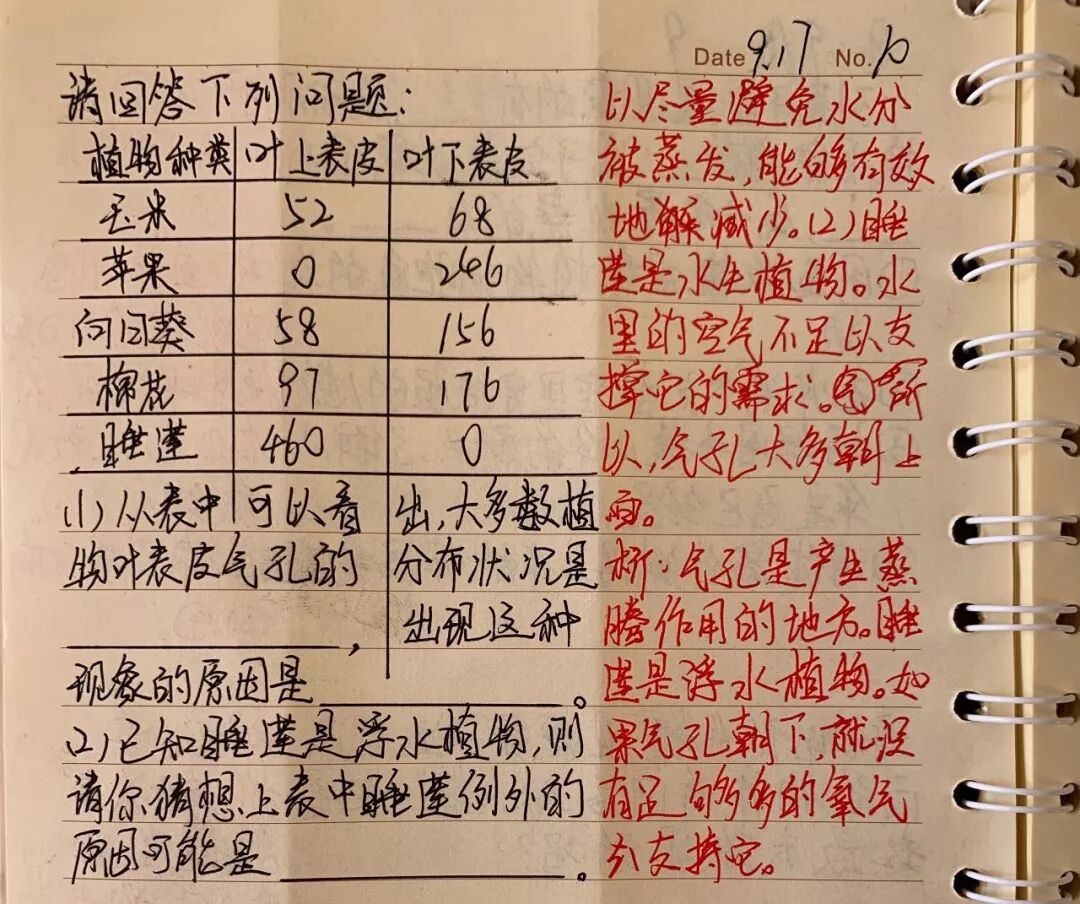 Date 9.17 No. 10
请回答下列问题:
植物种类 叶上表皮 叶下表皮
玉米 52 68
苹果 0 246
向日葵 58 156
棉花 97 176
睡莲 460 0
(1)从表中可以看出,大多数植
物叶表皮气孔的分布状况是
,出现这种
现象的原因是 。
(2)已知睡莲是浮水植物,则
请你猜想上表中睡莲例外的
原因可能是 。
以尽量避免水分
被蒸发,能够有效
地解减少。(2)睡
莲是水生植物。水
里的空气不足以支
撑它的需求。所
以,气孔大多朝上
面。
析:气孔是产生蒸
腾作用的地方。睡
莲是浮水植物。如
果气孔朝下,就没
有足够多的氧气
支持它。